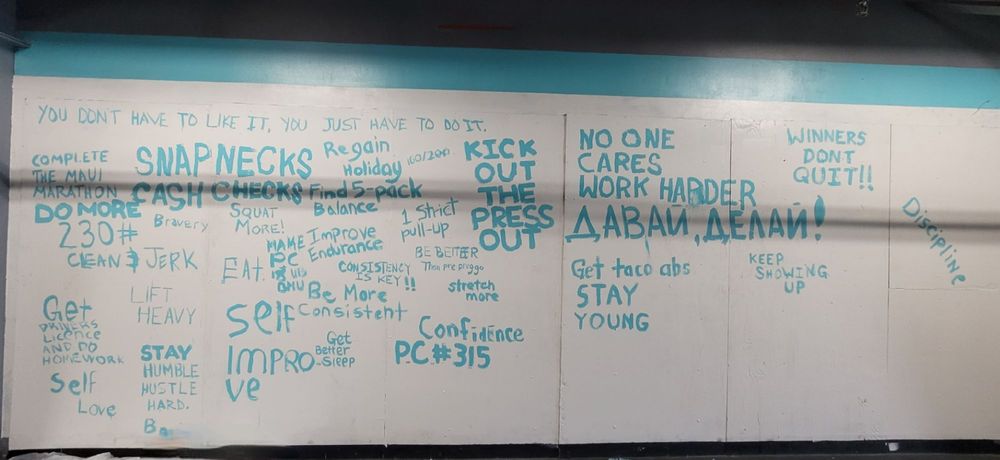 YOU DONT HAVE TO LIKE IT, YOU JUST HAVE TO DO IT.
COMPLETE
THE MAUI
MARATHON
SNAP NECKS
CASH CHECKS
Regain
Holiday
160/200
Find 5-pack
Balance
KICK
OUT
THE
PRESS
OUT
DO MORE
Bravery
SQUAT
MORE!
1 Strict
pull-up
230#
CLEAN & JERK
MAKE
PC
Improve
Endurance
BE BETTER
Than pre preggo
EAT.
CONSISTENCY
IS KEY!!
stretch
more
Be More
Consistent
LIFT
HEAVY
Get
DRIVERS
Licence
AND DO
HOMEWORK
Self
Love
STAY
HUMBLE
HUSTLE
HARD.
Self
IMPRO
ve
Get
Better
Sleep
Confidence
PC #315
NO ONE
CARES
WORK HARDER
ДАВАЙ, ДЕЛАЙ!
Get taco abs
STAY
YOUNG
WINNERS
DONT
QUIT!!
KEEP
SHOWING
UP
Discipline